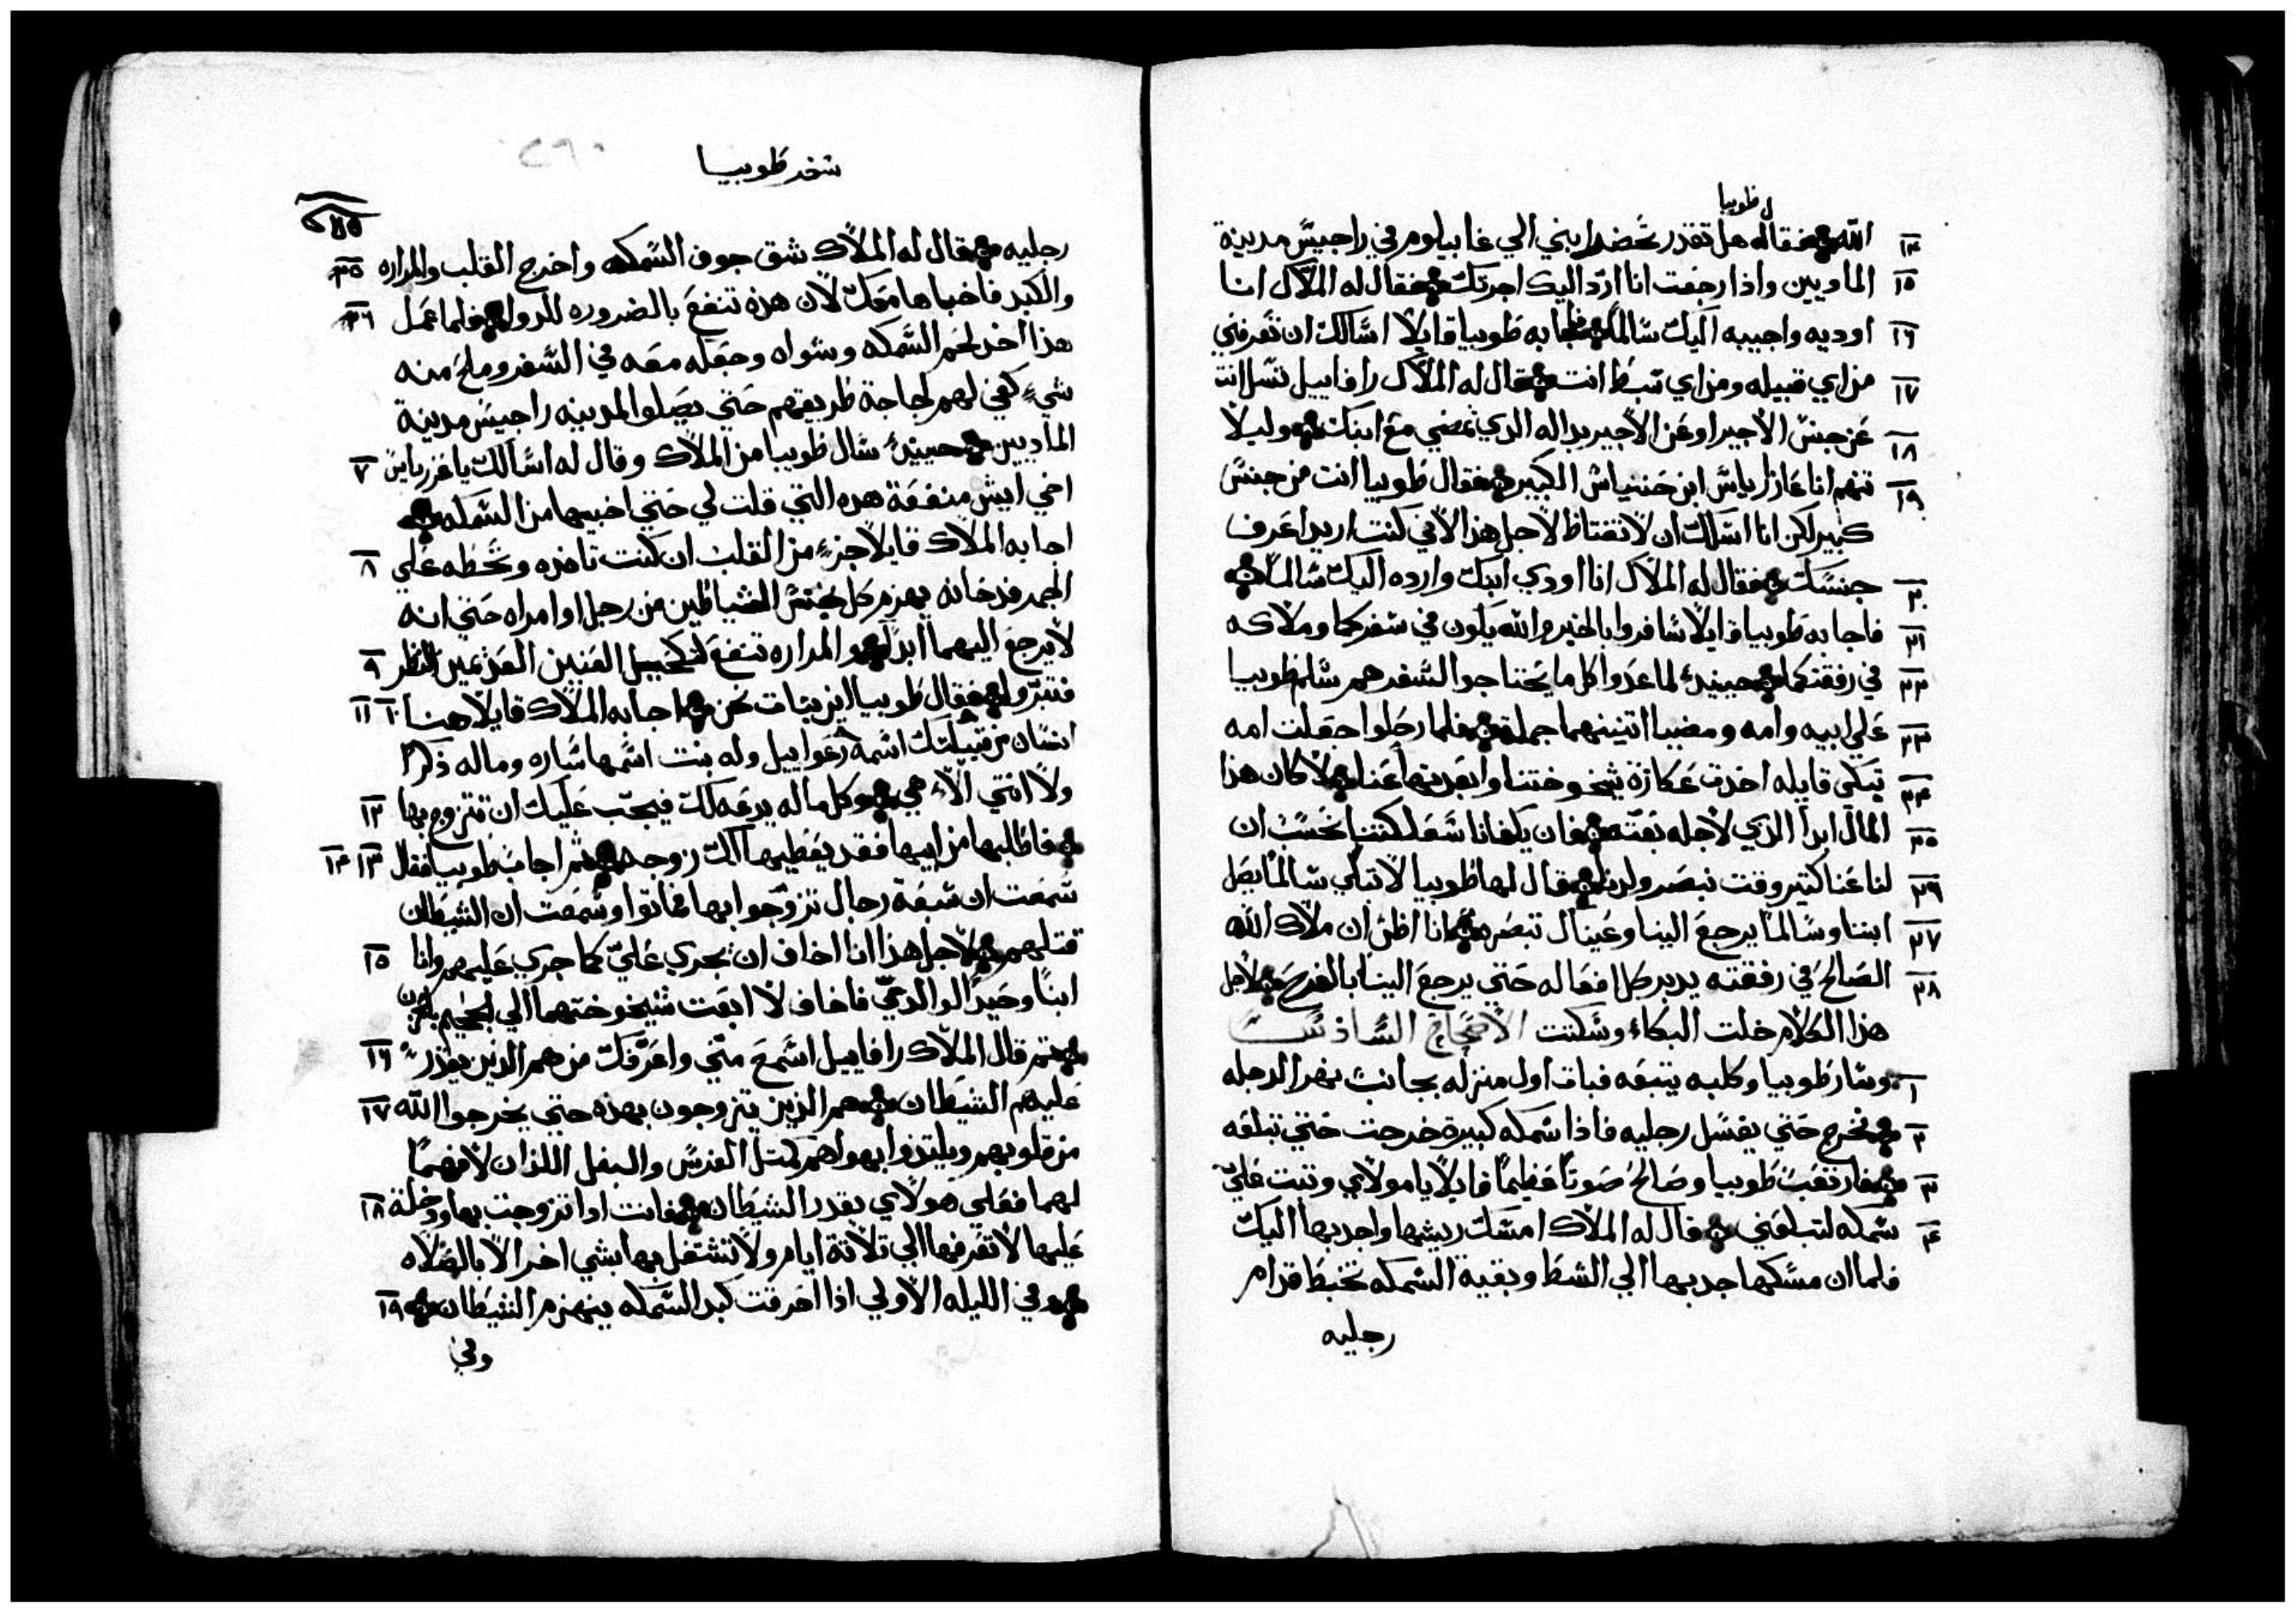 طوبيا
١٤ الله فقال له هل تقدر تحضر ابني الي غابيلوم في راجيس مدينة
١٥ الماديين واذا رجعت انا ارد اليك اجرتك فقال له الملاك انا
١٦ اوديه واجيبه اليك سالماً فاجابه طوبيا قايلاً اسالك ان تعرفني
١٧ من اي قبيله ومن اي سبط انت فقال له الملاك رافاييل تسل انت
١٨ عن جنس الاجير او عن الاجير بداله الدي يمضي مع ابنك وليلا
١٩ تتهم انا عازارياس ابن حننياس الكبير فقال طوبيا انت من جنس
كبير لكن انا اسالك ان لا تغتاظ لاجل هذا لاني كنت اريد اعرف
٢٠ جنسك فقال له الملاك انا اودي ابنك وارده اليك سالماً
٢١ فاجابه طوبيا قايلاً سافروا بالخير والله يكون في سفركما وملاكه
٢٢ في رفقتكما حينيدٍ لما عدوا كل ما يحتاجوا السفر هم سلم طوبيا
٢٣ علي ابيه وامه ومضيا اتنينهما جملة فلما رحلوا جعلت امه
٢٤ تبكي قايله اخدت عكازة شيخوختنا وابعدتها عنا لا كان هذا
٢٥ المال ابداً الذي لاجله بعته فان يكفانا شغلك كتنا نحسب ان
٢٦ لنا غنا كتير وقت نبصر ولدنا فقال لها طوبيا لا تبكي سالماً يصل
٢٧ ابننا وسالماً يرجع الينا وعيناك تبصره انا اظن ان ملاك الله
٢٨ الصالح في رفقته يدبر كل افعاله حتي يرجع الينا بالفرح ولاجل
هذا الكلام خلت البكاء وسكتت الاصحاح السادس
١ وسار طوبيا وكلبه يتبعه فبات اول منزله بجانب نهر الدجله
٢ فخرج حتي يغسل رجليه فاذا سمكه كبيرة خرجت حتي تبلعه
٣ فارتعب طوبيا وصالح صوتاً عظيماً قايلاً يا مولاي وتبت علي
٤ سمكه لتبلعني فقال له الملاك امسك ريشها واجدبها اليك
فلما ان مسكها جدبها الي الشط وبقية السمكه تختبط قدام
رجليه
سفر طوبيا
٢٦٠
رجليه فقال له الملاك شق جوف السمكه واخرج القلب والمراره ٥
والكبد فاخباها معك لان هذه تنفع بالضروره للدوا فلما عمل ٦
هذا اخد لحم السمكه وشواه وجعله معه في السفر وملح منه
شيءٍ كفي لهم لحاجة طريقهم حتي يصلوا المدينه راجيس مدينة
الماديين حينيدٍ سال طوبيا من الملاك وقال له اسالك يا عزرياس ٧
اخي ايش منفعة هده التي قلت لي حتي اخبيها من السمكه
اجابه الملاك قايلاً جزءٍ من القلب ان كنت تاخده وتحطه علي ٨
الجمر فدخانه يهزم كل جنس الشياطين من رجل او امراه حتي انه
لا يرجع اليهما ابداً والمراره تنفع لتكحيل العينين العدمين النظر ٩
فتبروا فقال طوبيا اين نبات نحن اجابه الملاك قايلاً هنا ١٠ ١١
انسان من قبيلتك اسمه رعواييل وله بنت اسمها ساره وماله ذكراً
ولا انتي الا هي وكل ماله يدعه لك فيجب عليك ان تتزوج بها ١٢
فاطلبها من ابيها فقد يعطيها لك زوجه ثم اجاب طوبيا فقال ١٣ ١٤
سمعت ان سبعة رجال تزوجوا بها فماتوا وسمعت ان الشيطان
قتلهم لاجل هذا انا اخاف ان يجري علي كما جري عليهم وانا ١٥
ابناً وحيداً لوالدي فاخاف لا ابعت شيخوختهما الي الجحيم بالحزن
ثم قال الملاك رافاييل اسمع مني واعرفك من هم الذين يقدر ١٦
عليهم الشيطان هم الذين يتزوجون بهذه حتي يخرجوا الله ١٧
من قلوبهم ويلتذوا بهواهم كمتل الفرس والبغل اللذان لا فهماً
لهما فعلي هولاي يقدر الشيطان فانت ادا تزوجت بها ودخلة ١٨
عليها لا تعرفها الي تلاتة ايام ولا تشتغل بها بشي اخر الا بالصلاه
وفي الليله الاولي اذا احرقت كبد السمكه ينهزم الشيطان ١٩
وفي